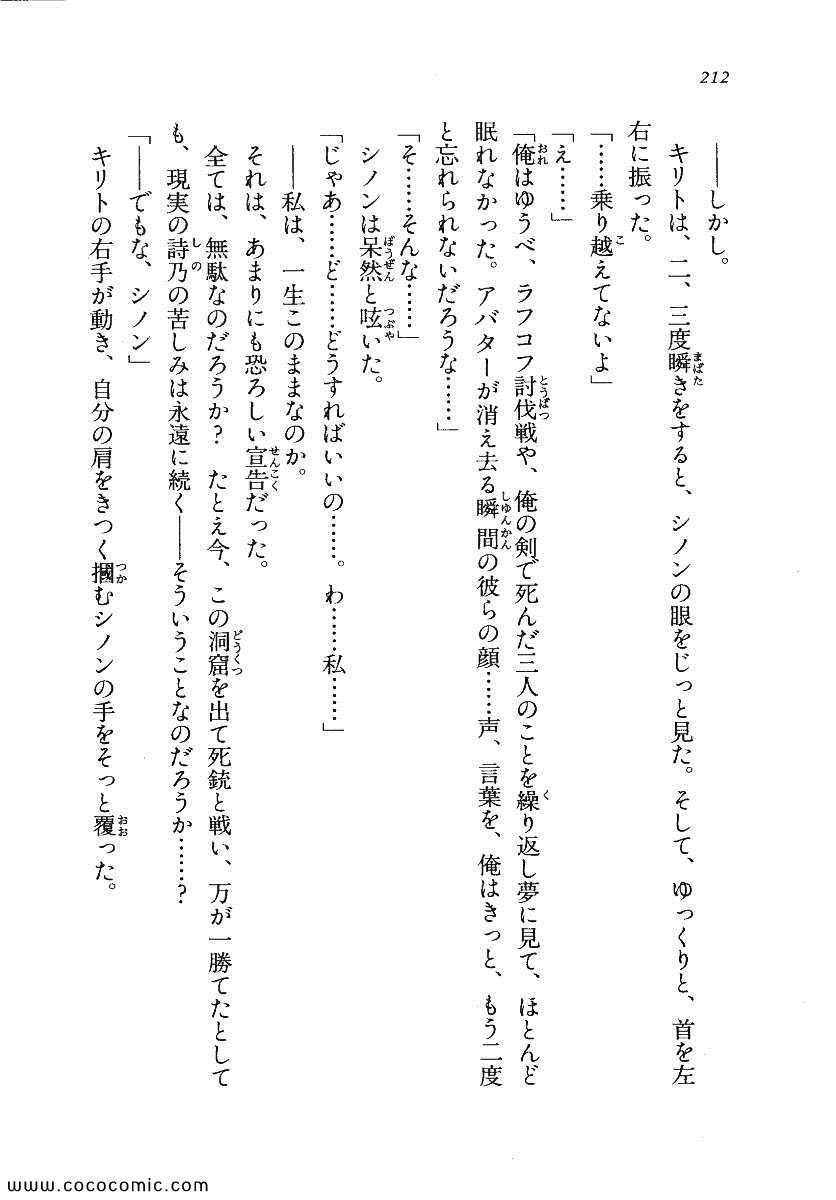 212
――しかし。
キリトは、二、三度瞬きをすると、シノンの眼をじっと見た。そして、ゆっくりと、首を左
右に振った。
「……乗り越えてないよ」
「え……」
「俺はゆうべ、ラフコフ討伐戦や、俺の剣で死んだ三人のことを繰り返し夢に見て、ほとんど
眠れなかった。アバターが消え去る瞬間の彼らの顔……声、言葉を、俺はきっと、もう二度
と忘れられないだろうな……」
「そ……そんな……」
シノンは呆然と呟いた。
「じゃあ……ど……どうすればいいの……。わ……私……」
――私は、一生このままなのか。
それは、あまりにも恐ろしい宣告だった。
全ては、無駄なのだろうか？　たとえ今、この洞窟を出て死銃と戦い、万が一勝てたとして
も、現実の詩乃の苦しみは永遠に続く――そういうことなのだろうか……？
「――でもな、シノン」
キリトの右手が動き、自分の肩をきつく摑むシノンの手をそっと覆った。
www.cococomic.com